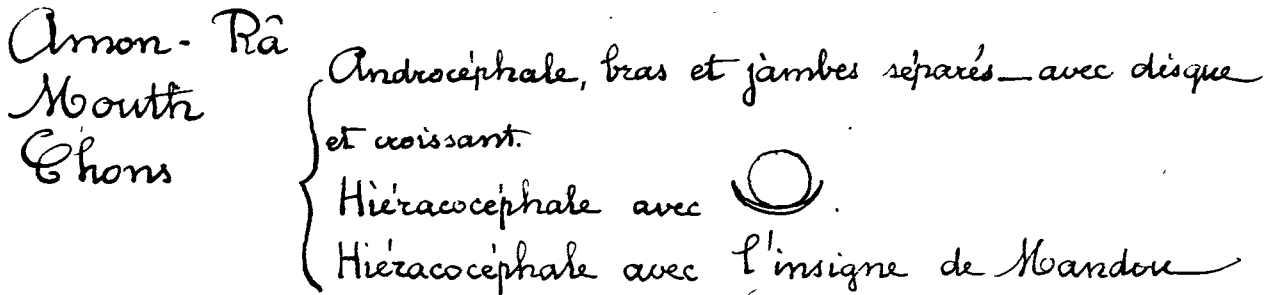 Amon-Râ
Mouth
Chons
Androcéphale, bras et jambes séparés_avec disque
et croissant.
Hiéracocéphale avec .
Hiéracocéphale avec l'insigne de Mandou